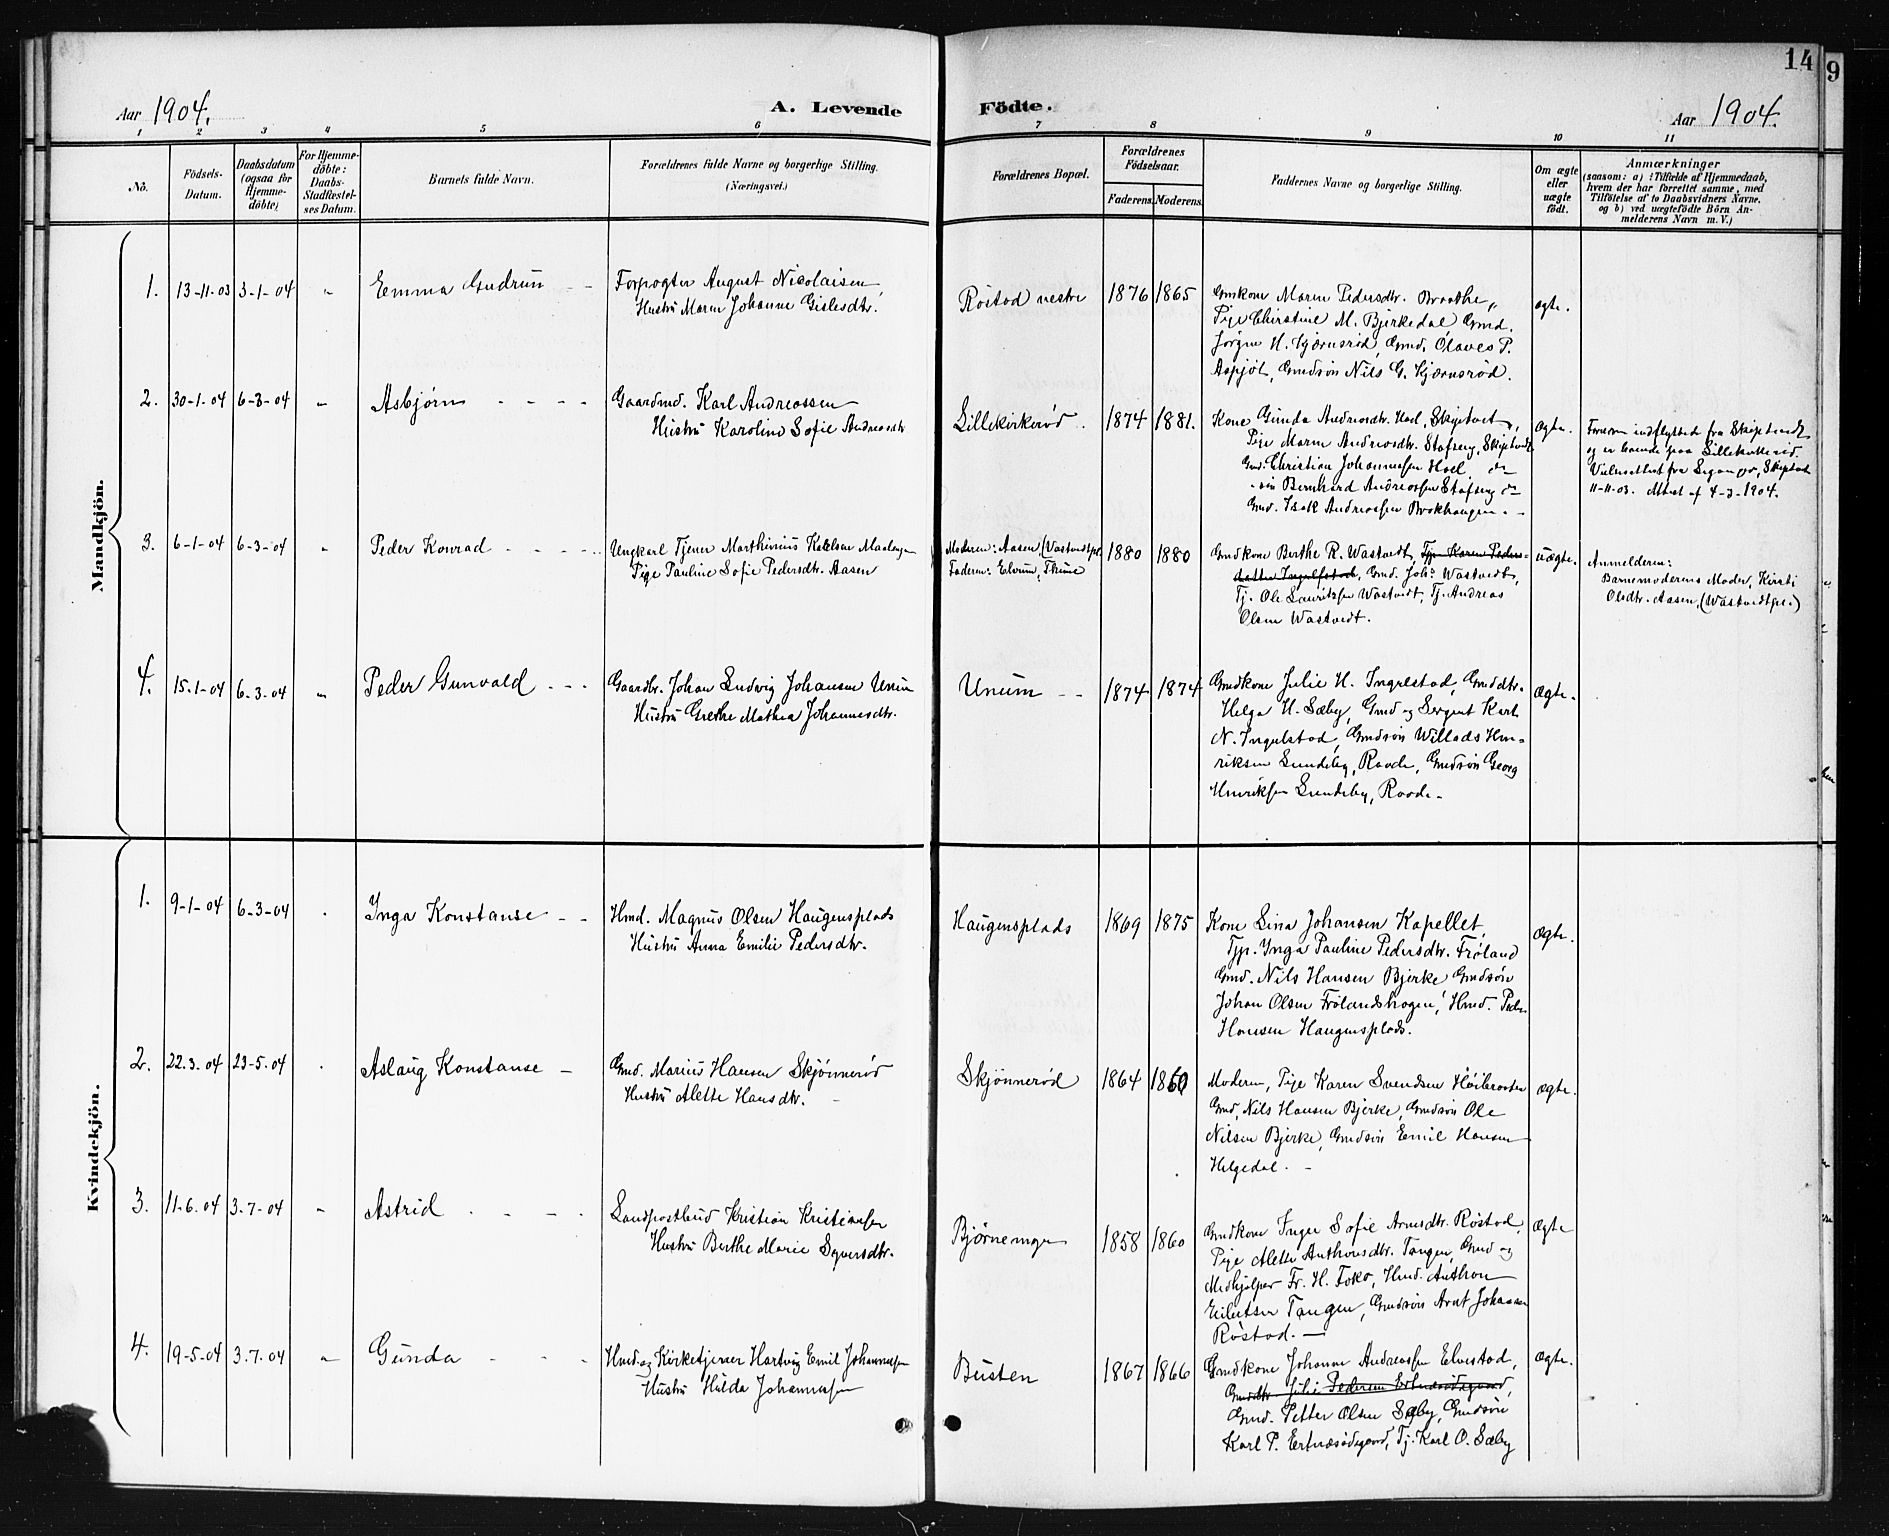 14
9
Aar 1904.
A. Levende Födte.
Aar 1904.
1 2 3 4 5 6 7 8 9 10 11
No.
Födsels-
Datum.
Daabsdatum
(ogsaa for
Hjemme-
döbte)
For Hjemme-
döbte:
Daabs-
Stadfæstel-
ses Datum.
Barnets fulde Navn.
Forældrenes fulde Navne og borgerlige Stilling.
(Næringsvei.)
Forældrenes Bopæl.
Forældrenes
Födselsaar.
Faderens.
Moderens.
Faddernes Navne og borgerlige Stilling.
Om ægte
eller
uægte
födt.
Anmærkninger
(saasom: a) i Tilfælde af Hjemmedaab,
hvem der har forrettet samme, med
Tilföielse af to Daabsvidners Navne.
og b) ved uægtefödte Börn An-
melderens Navn m. V.)
Mandkjön.
1. 13-11-03 3-1-04 " Emma Gudrun - -
Forpagter August Nicolaisen
Hustru Maren Johanne Gislesdtr.
Röstad vestre 1876 1865
Gmkone Maren Pedersdtr. Braathe,
Pige Christine M. Bjerkedal Gmd.
Jörgen H. Kjærnsröd, Gmd. Olaves P.
Aspjöt, Gmdsön Nils G. Kjærnsröd.
ægte.
2. 30-1-04 6-3-04 " Asbjørn - - - -
Gaardmd. Karl Andreassen
Hustru Karoline Sofie Andreasdtr
Lillekirkeröd. 1874 1881.
Kone Gunda Andreasdtr. Hoel, Skiptvet,
Pige Maren Andreasdtr. Stafseng, Skiptvedt
Gmd. Christian Johannessen Hoel, do
sön Bernhard Andreassen Stafseng do
Gmd. Isak Andreassen Brokhaugen - -
ægte.
indflyttede fra Skiptvedt
og er boende paa
fra Skiptvet
11-11-03. Attest af 4-3-1904.
3. 6-1-04 6-3-04 " Peder Konrad - - - -
Ungkarl Tjener Marthinius
Pige Pauline Sofie Pedersdtr. Aasen
Moderen: Aasen, (Vastvedtpl.
Faderen: Elvrum, Thune
1880 1880
Gmdkone Berthe R. Wastvedt, Tjp. Karen Peders-
datter Ingelstad, Gmd. Johs Wastvedt,
Tj. Ole Lauritzen Wastvedt, Tj. Andreas
Olsen Wastvedt.
uægte.
Anmelderen:
Barnemoderens Moder, Kirsti
Olsdtr. Aasen, (Wastvedtpl.)
4. 15-1-04 6-3-04 " Peder Gunvald - - -
Gaardbr. Johan Ludvig Johansen Unum
Hustru Grethe Mathea Johannesdtr.
Unum - - 1874 1874
Gmdkone Julie H. Ingelstad, Gmddtr.
Helga H. Sæby, Gmd og Sergent Karl
N. Ingelstad, Gmdsön Willads Hen-
riksen Sundeby, Raade, Gmdsön Georg
Henriksen Sundeby, Raade -
ægte.
Kvindekjön.
1. 9-1-04 6-3-04 Inga Konstanse - -
Hmd. Magnus Olsen Haugensplads
Hustru Anna Emilie Pedersdtr.
Haugensplads 1869 1875
Kone Lina Johansen Kapellet,
Tjp. Inga Pauline Pedersdtr. Fröland
Gmd. Nils Hansen Bjerke Gmdsön
Johan Olsen Frölandshagen, Hmd. Peder
Hansen Haugensplads.
ægte.
2. 22.3.04 23-5-04 Aslaug Konstanse -
Gmd. Marius Hansen Skjönneröd
Hustru Alette Hansdtr. -
Skjönneröd 1864 1860
Moderen, Pige Karen Svendsen Höibraaten
Gmd. Nils Hansen Bjerke, Gmdsön Ole
Nilsen Bjerke, Gmdsön Emil Hansen
Helgedal. -
ægte.
3. 11.6.04 3.7-04 " Astrid - - - -
Landpostbud Kristian Kristiansen
Hustru Berthe Marie Syversdtr.
Bjørnemyr 1858 1860
Gmdkone Inger Sofie Arnesdtr. Röstad,
Pige Alette Anthonsdtr. Tangen, Gmd og
Medhjælper Fr. H. Foko, Hmd. Anthon
Eilertsen Tangen, Gmdsön Arnt Johansen
Röstad. -
ægte
4. 19-5-04 3.7.04 " Gunda - - -
Hmd. og Kirketjener Hartvig Emil Johannessen
Hustru Hilda Johannessen
Busten 1867 1866
Gmdkone Johanne Andreassen Elvestad,
Gmddtr. Juli Pedersen Ertnæsödegaard,
Gmd. Petter Olsen Sæby, Gmdsön
Karl P. Ertnæsödegaard, Tj. Karl O. Sæby
ægte.